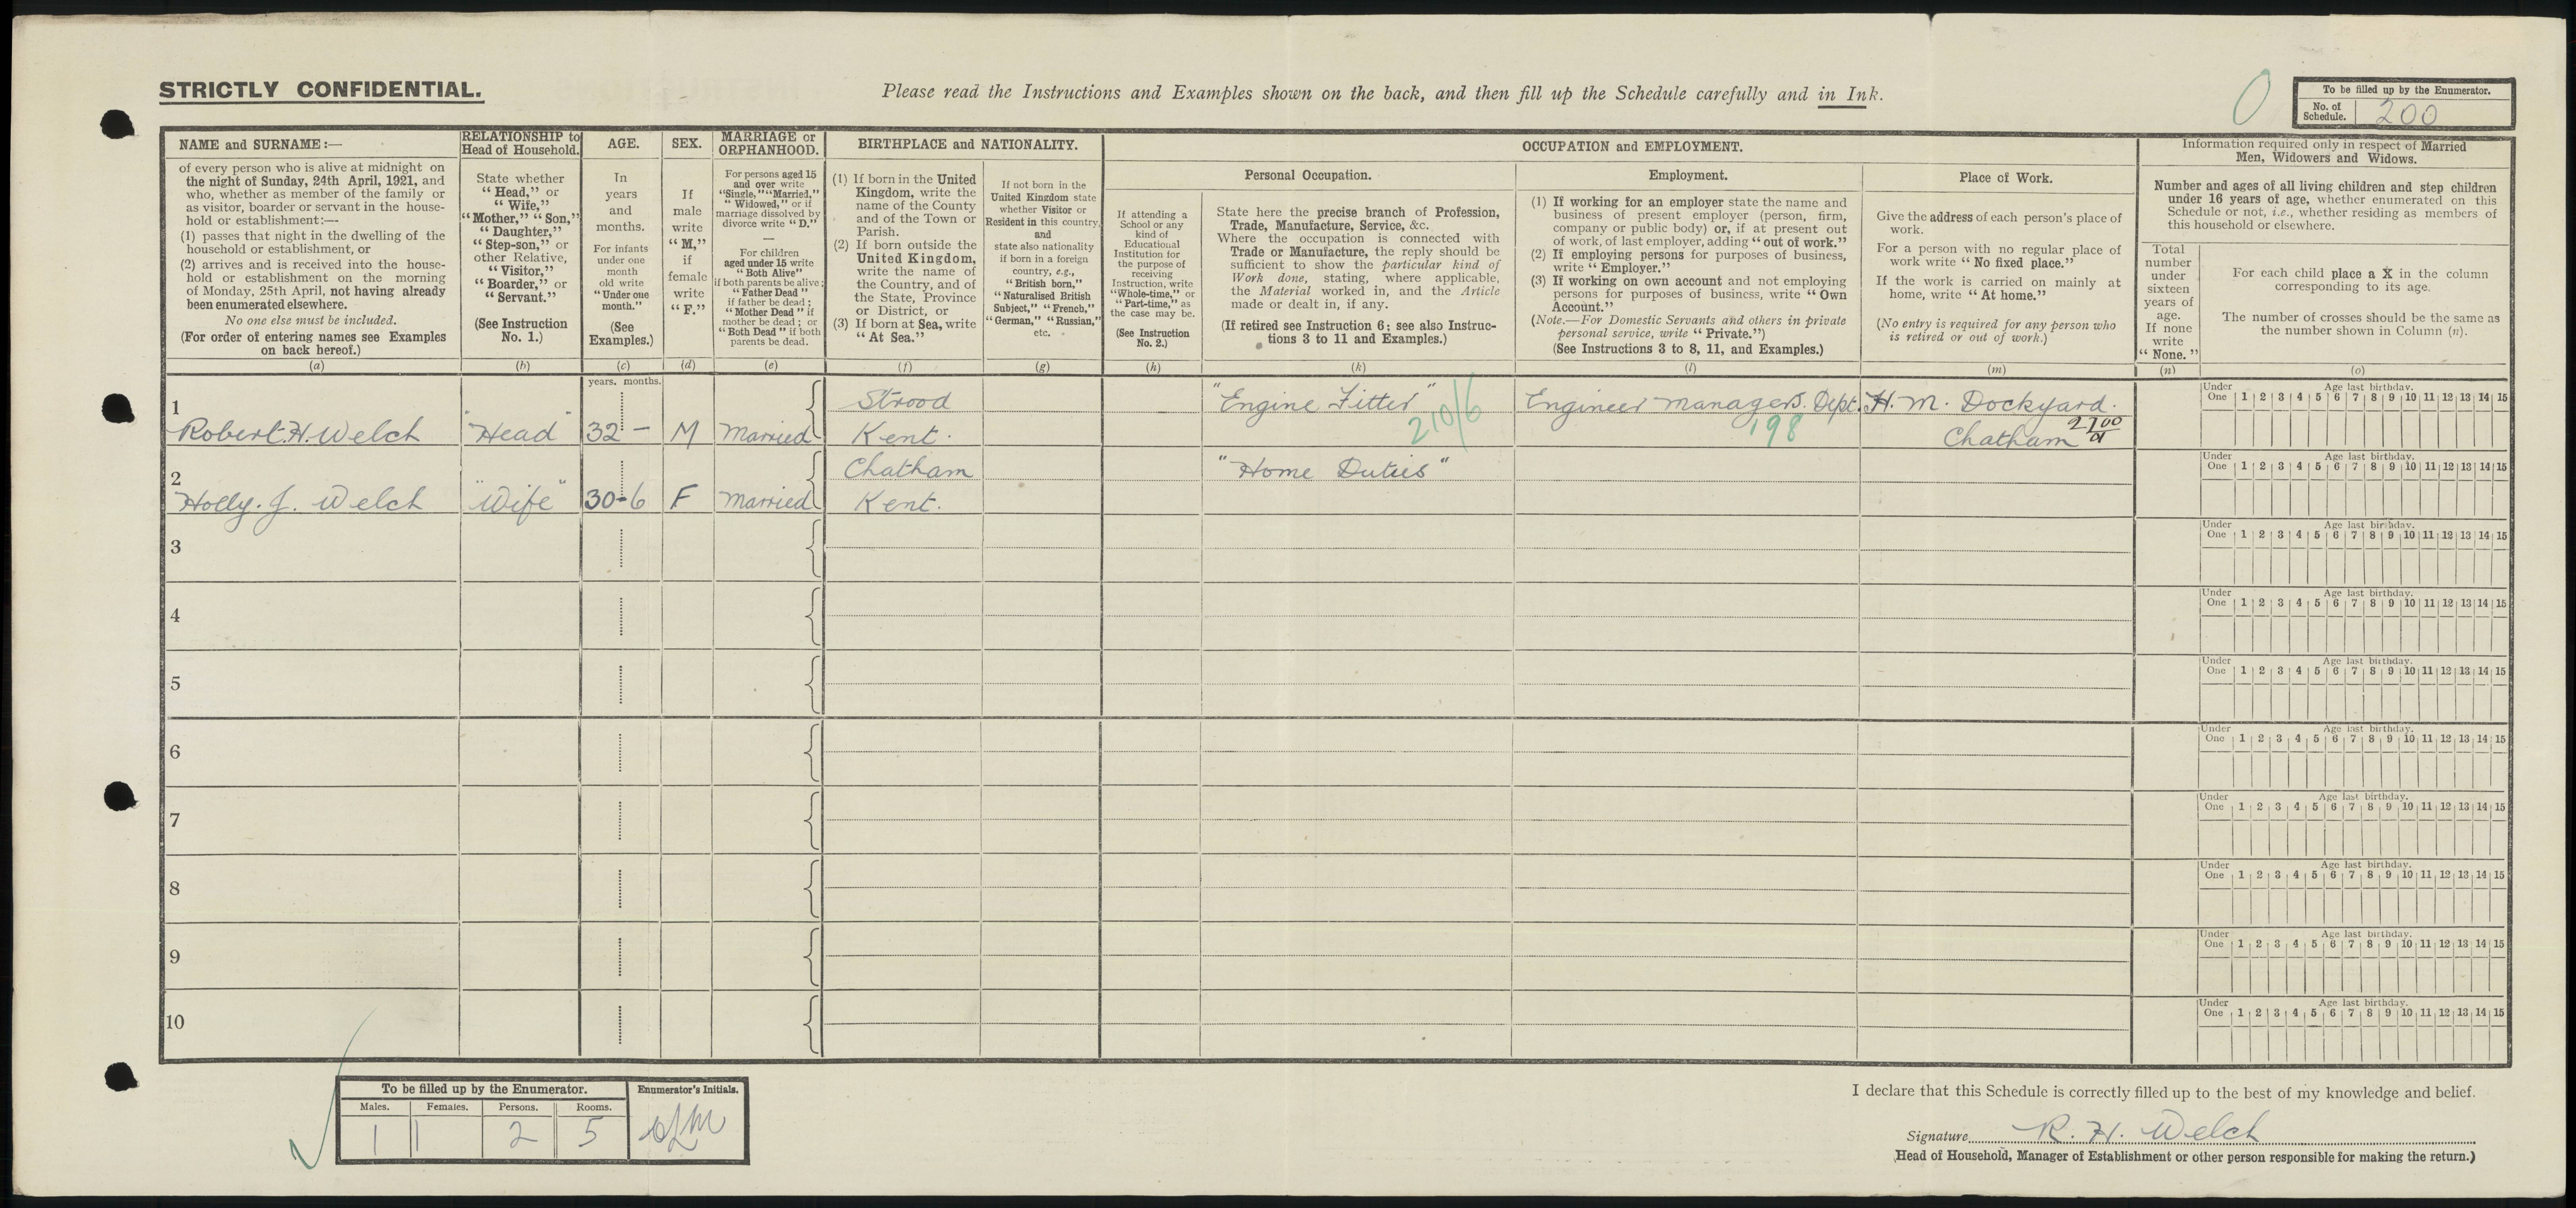 STRICTLY CONFIDENTIAL.
Please read the Instructions and Examples shown on the back, and then fill up the Schedule carefully and in Ink.
0
To be filled up by the Enumerator.
No. of Schedule. 200
NAME and SURNAME:—
of every person who is alive at midnight on
the night of Sunday, 24th April, 1921, and
who, whether as member of the family or
as visitor, boarder or servant in the house-
hold or establishment:—
(1) passes that night in the dwelling of the
household or establishment, or
(2) arrives and is received into the house-
hold or establishment on the morning
of Monday, 25th April, not having already
been enumerated elsewhere.
No one else must be included.
(For order of entering names see Examples
on back hereof.)
(a)
RELATIONSHIP to
Head of Household.
State whether
“Head,” or
“Wife,”
“Mother,” “Son,”
“Daughter,”
“Step-son,” or
other Relative,
“Visitor,”
“Boarder,” or
“Servant.”
(See Instruction
No. 1.)
(b)
AGE.
In
years
and
months.
For infants
under one
month
old write
“Under one
month.”
(See
Examples.)
(c)
SEX.
If
male
write
“M,”
if
female
write
“F.”
(d)
MARRIAGE or
ORPHANHOOD.
For persons aged 15
and over write
“Single,” “Married,”
“Widowed,” or if
marriage dissolved by
divorce write “D.”
—
For children
aged under 15 write
“Both Alive”
if both parents be alive;
“Father Dead”
if father be dead;
“Mother Dead” if
mother be dead; or
“Both Dead” if both
parents be dead.
(e)
BIRTHPLACE and NATIONALITY.
(1) If born in the United
Kingdom, write the
name of the County
and of the Town or
Parish.
(2) If born outside the
United Kingdom,
write the name of
the Country, and of
the State, Province
or District, or
(3) If born at Sea, write
“At Sea.”
(f)
If not born in the
United Kingdom state
whether Visitor or
Resident in this country,
and
state also nationality
if born in a foreign
country, e.g.,
“British born,”
“Naturalised British
Subject,” “French,”
“German,” “Russian,”
etc.
(g)
OCCUPATION and EMPLOYMENT.
If attending a
School or any
kind of
Educational
Institution for
the purpose of
receiving
Instruction, write
“Whole-time,” or
“Part-time,” as
the case may be.
(See Instruction
No. 2.)
(h)
Personal Occupation.
State here the precise branch of Profession,
Trade, Manufacture, Service, &c.
Where the occupation is connected with
Trade or Manufacture, the reply should be
sufficient to show the particular kind of
Work done, stating, where applicable,
the Material worked in, and the Article
made or dealt in, if any.
(If retired see Instruction 6; see also Instruc-
tions 3 to 11 and Examples.)
(k)
Employment.
(1) If working for an employer state the name and
business of present employer (person, firm,
company or public body) or, if at present out
of work, of last employer, adding “out of work.”
(2) If employing persons for purposes of business,
write “Employer.”
(3) If working on own account and not employing
persons for purposes of business, write “Own
Account.”
(Note.—For Domestic Servants and others in private
personal service, write “Private.”)
(See Instructions 3 to 8, 11, and Examples.)
(l)
Place of Work.
Give the address of each person's place of
work.
For a person with no regular place of
work write “No fixed place.”
If the work is carried on mainly at
home, write “At home.”
(No entry is required for any person who
is retired or out of work.)
(m)
Information required only in respect of Married
Men, Widowers and Widows.
Number and ages of all living children and step children
under 16 years of age, whether enumerated on this
Schedule or not, i.e., whether residing as members of
this household or elsewhere.
Total
number
under
sixteen
years of
age.
If none
write
“None.”
(n)
For each child place a X in the column
corresponding to its age.
The number of crosses should be the same as
the number shown in Column (n).
(o)
years. months.
1
Robert. H. Welch "Head" 32 - M Married Strood
Kent. "Engine Fitter" 210/6 Engineer Managers Dept. 198 H. M. Dockyard.
Chatham 2700
Under One Age last birthday. 1 2 3 4 5 6 7 8 9 10 11 12 13 14 15
2
Holly. J. Welch "Wife" 30-6 F Married Chatham
Kent. "Home Duties"
Under One Age last birthday. 1 2 3 4 5 6 7 8 9 10 11 12 13 14 15
3
Under One Age last birthday. 1 2 3 4 5 6 7 8 9 10 11 12 13 14 15
4
Under One Age last birthday. 1 2 3 4 5 6 7 8 9 10 11 12 13 14 15
5
Under One Age last birthday. 1 2 3 4 5 6 7 8 9 10 11 12 13 14 15
6
Under One Age last birthday. 1 2 3 4 5 6 7 8 9 10 11 12 13 14 15
7
Under One Age last birthday. 1 2 3 4 5 6 7 8 9 10 11 12 13 14 15
8
Under One Age last birthday. 1 2 3 4 5 6 7 8 9 10 11 12 13 14 15
9
Under One Age last birthday. 1 2 3 4 5 6 7 8 9 10 11 12 13 14 15
10
Under One Age last birthday. 1 2 3 4 5 6 7 8 9 10 11 12 13 14 15
To be filled up by the Enumerator.
Males. Females. Persons. Rooms.
1 1 2 5
Enumerator's Initials.
I declare that this Schedule is correctly filled up to the best of my knowledge and belief.
Signature R. H. Welch
Head of Household, Manager of Establishment or other person responsible for making the return.)